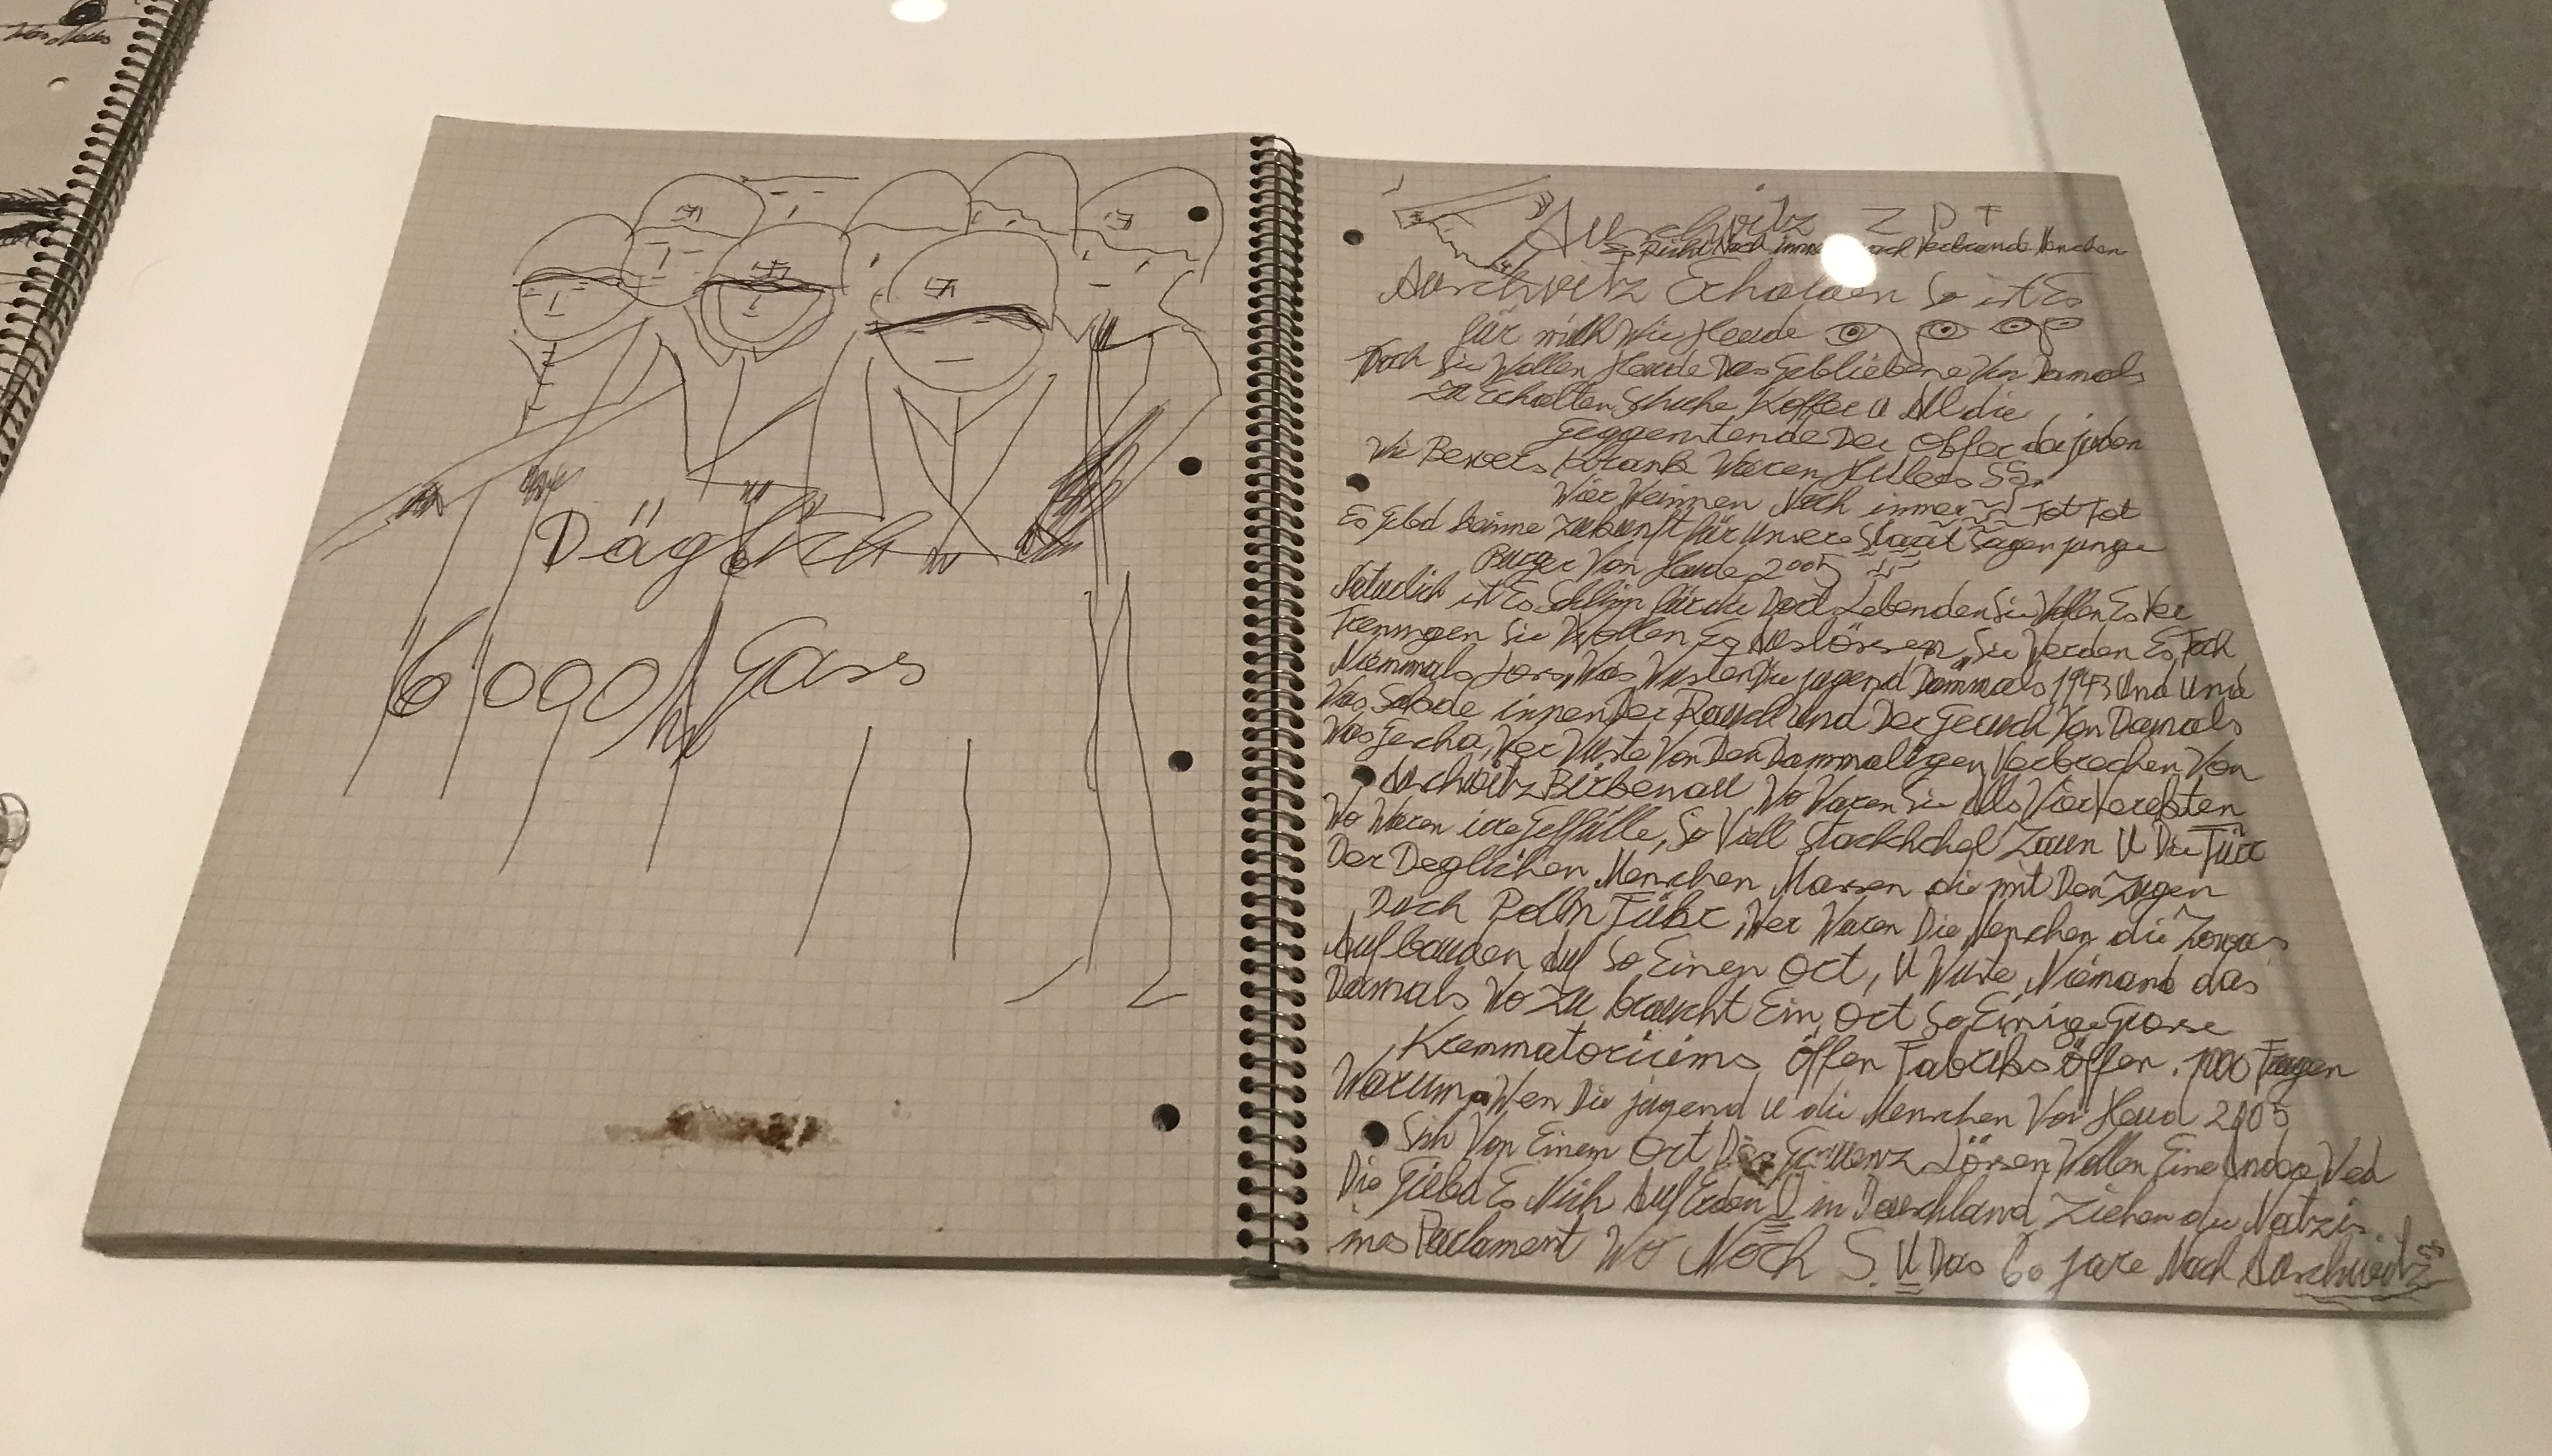 Däglich
6000 Gass
Auschwitz Z D T
Es Richt Noch immer nach Verbrande Menchen
Auschwitz Erhalden So ist Es
für mich Wie Heude
Doch Sie Wollen Heude Das Gebliebene Von Damals
Zu Erhalten Schuhe Koffer U All die
Geggenstende Der Obfer der juden
Wie Krank Waren Hitlers SS.
Wier Weinnen Noch immer Tot Tot
Es Gibd keinne Zukunft für Unsere Staat Sagen junge
Burger Von Heude 2005
Naturlich ist Es Schlimm für die Dort Lebenden Sie Wollen Es Ver
Trenngen Sie Wollen Es Auslössen, Sie Werden Es Toch
Niemmals Loss, Was Wusten Die jugend Dammals 1943 Und Und
Was Sahde innen Der Rauch Und Der Geruch Von Damals
Was Gescha, Wer Wuste Von Den Dammaligen Verbrechen Von
Auschwitz Birkenau Wo Waren Sie Alls Wier
Wo Waren ire Geffülle, So Viell Stackhchel Zaun U Die Tür
Der Deglichen Menschen Massen die mit Den Zügen
Doch Polln Führ, Wer Waren Die Menchen die
Aufbauden Auf So Einen Ort, U Wuste Niemand das
Damals Wo Zu braucht Ein Ort So Einige Grosse
Kremmatoriiems Öffen Fabriks öffen. 1000 Fragen
Warum. Wen Die jugend U die Menschen Von Heud 2005
Sich Von Einem Ort Des Lössen Wollen Eine Andre
Die Giebd Es Nich Auf Erden U in Deuschland Ziehen die Natzis
ins Parlament Wo Noch S. U Das 60 jare Nach Auschwitz